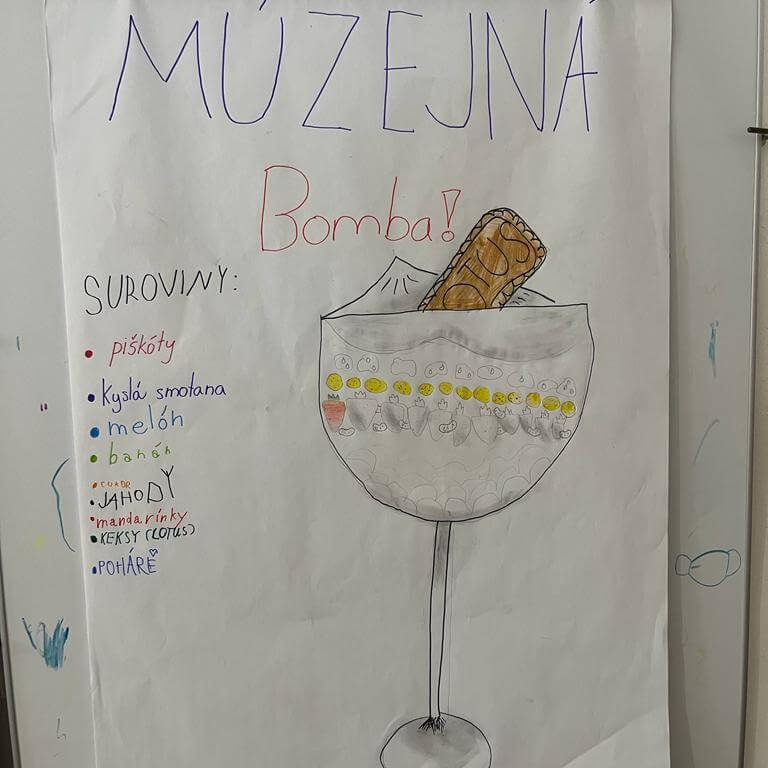 MÚZEJNÁ
Bomba!
SUROVINY:
• piškóty
• Kyslá smotana
• melón
• banán
• CUKOR
• JAHODY
• mandarínky
• KEKSY (LOTUS)
• POHÁRE
OTUS